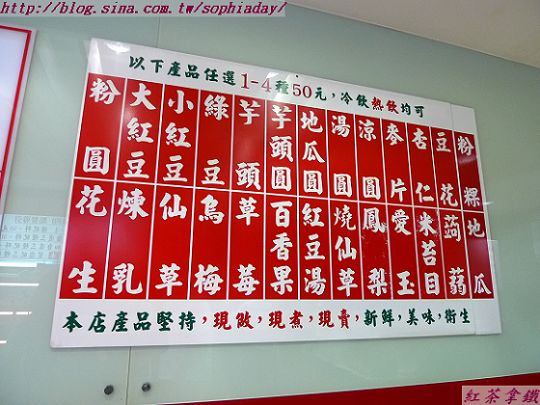 http://blog.sina.com.tw/sophiaday/
以下產品任選1-4種50元，冷飲熱飲均可
粉圓
大紅豆
小紅豆
綠豆
芋頭
芋頭圓
地瓜圓
湯圓
涼圓
麥片
杏仁
豆花
粉粿
花生
煉乳
仙草
烏梅
草莓
百香果
紅豆湯
燒仙草
鳳梨
愛玉
米苔目
蒟蒻
地瓜
本店產品堅持，現做，現煮，現賣，新鮮，美味，衛生
紅茶拿鐵